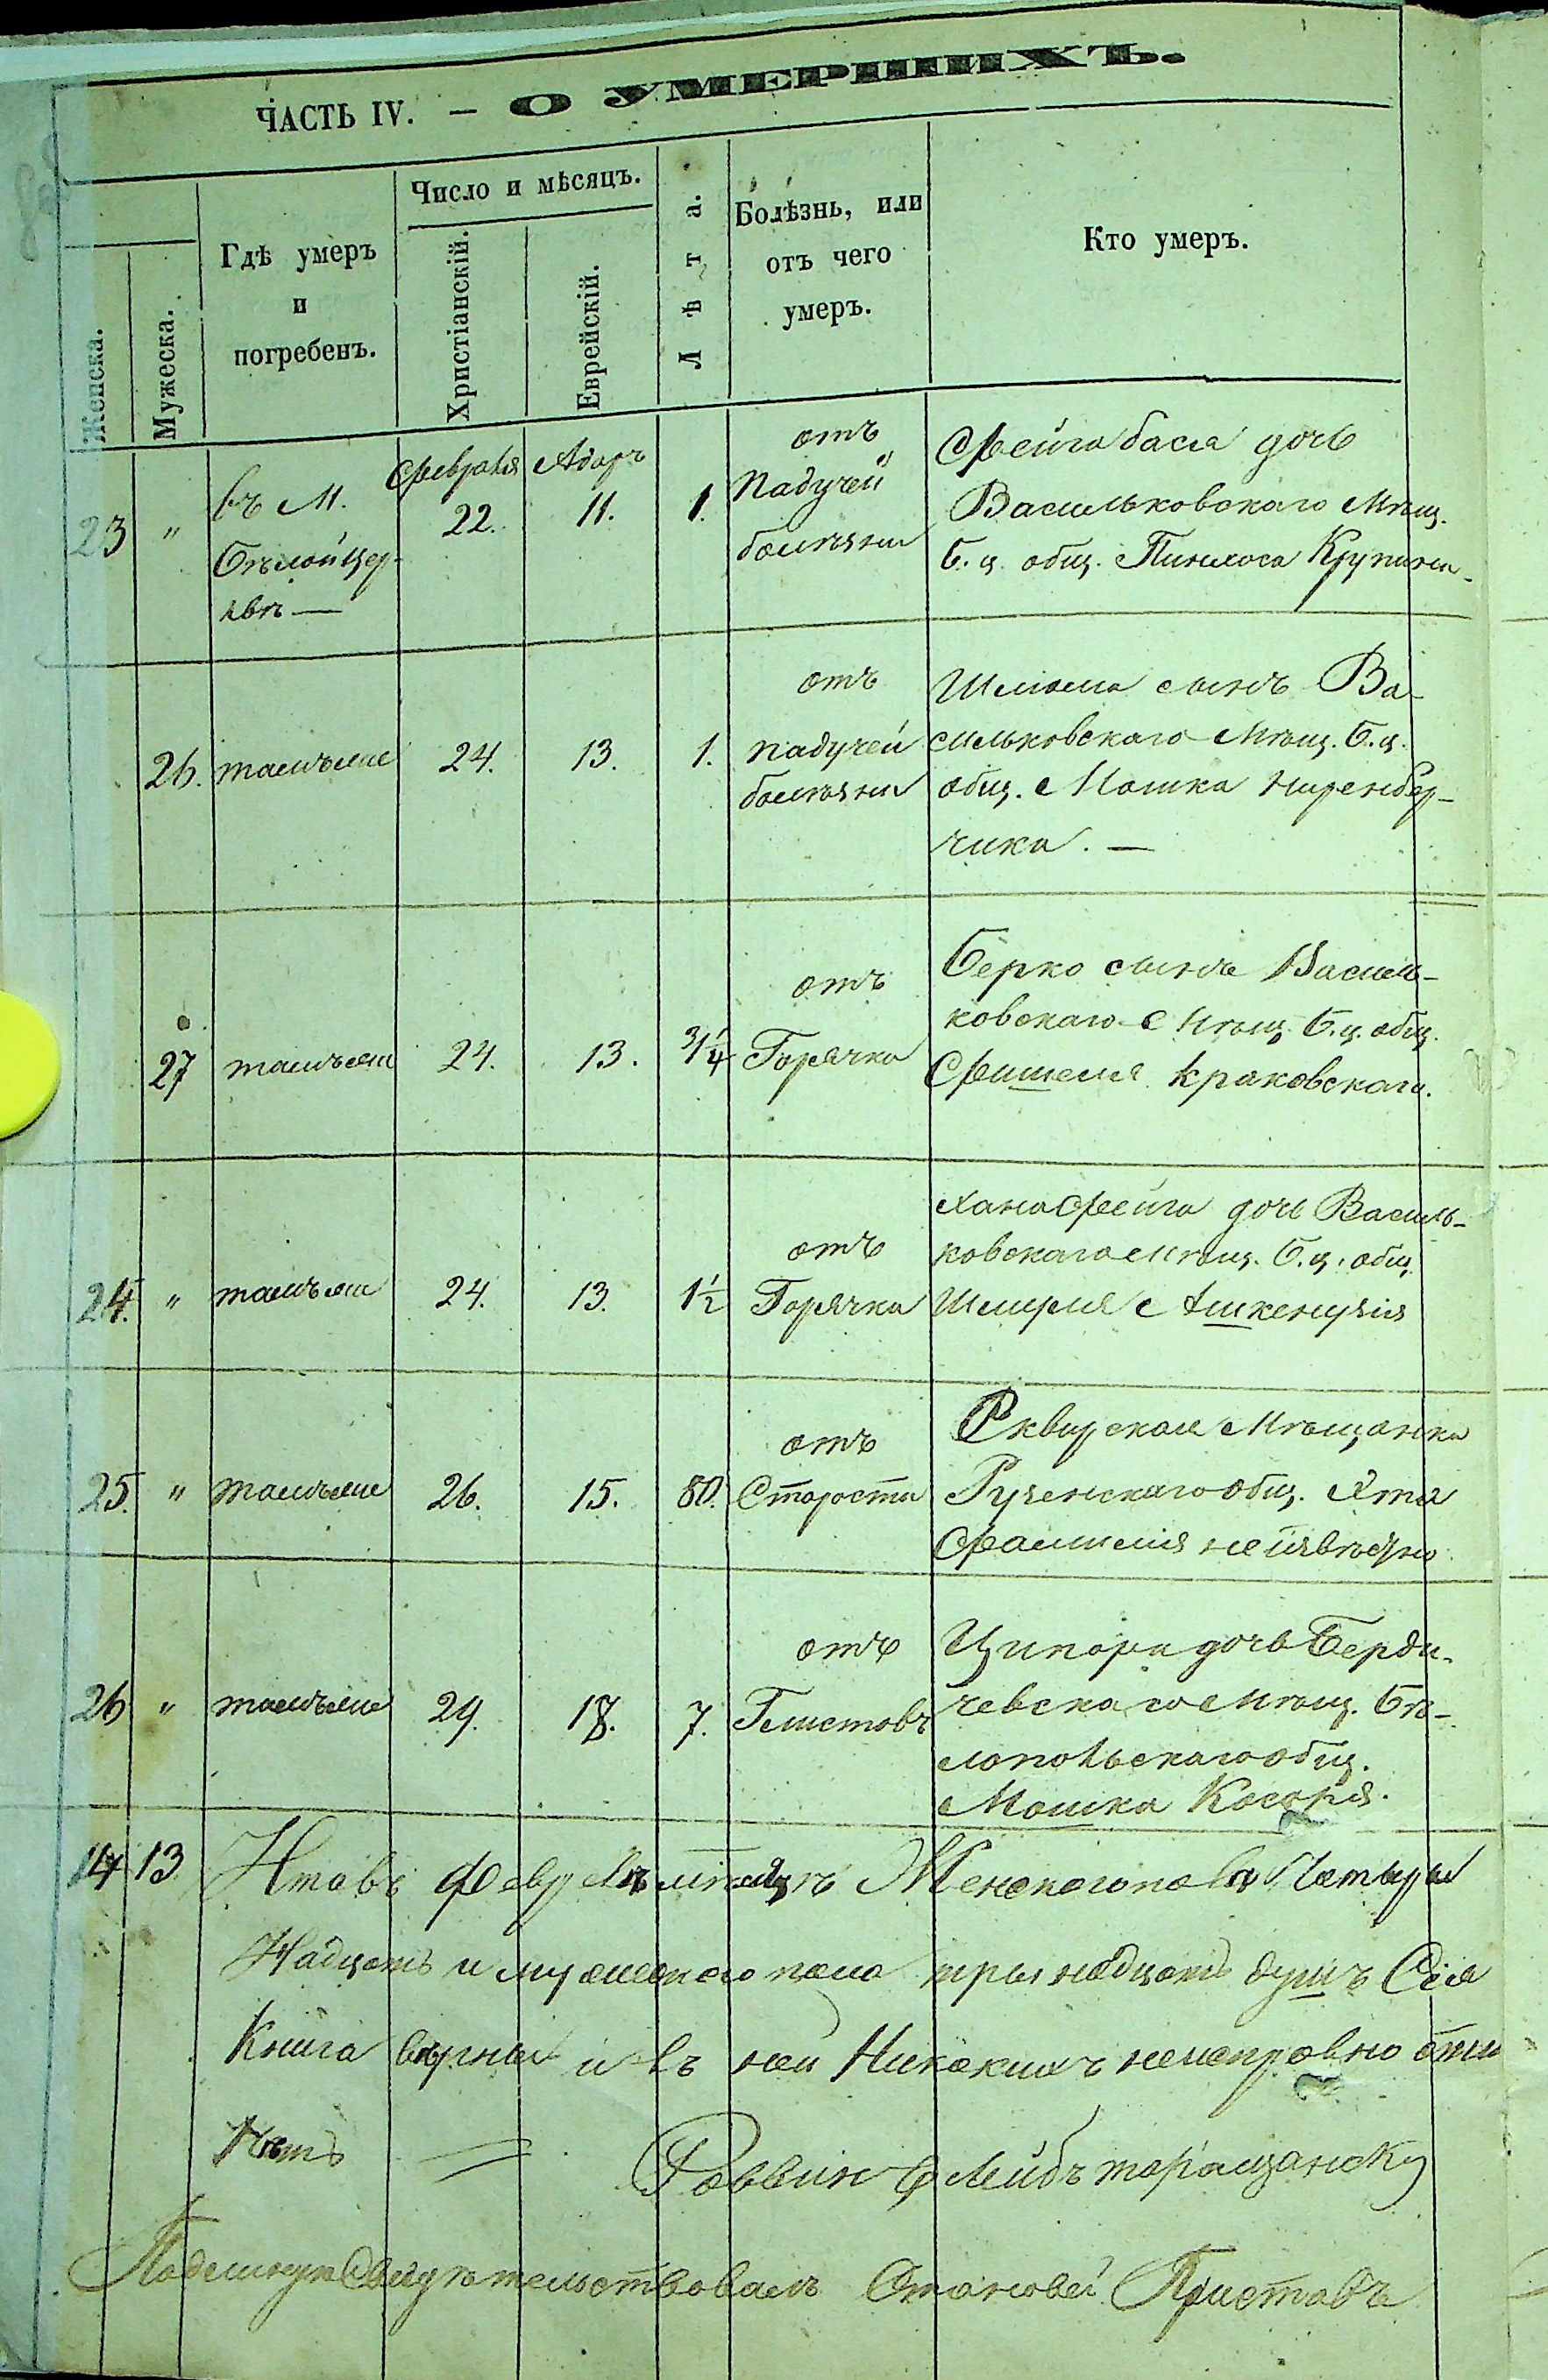 ЧАСТЬ IV. — О УМЕРШИХЪ.
Женска.
Мужеска.
Гдѣ умеръ
и
погребенъ.
Число и мѣсяцъ.
Христіанскій.
Еврейскій.
Лѣта.
Болѣзнь, или
отъ чего
умеръ.
Кто умеръ.
23 " въ М. Бѣлой Цер-
квѣ —
Февраля 22. Адаръ 11. 1.
отъ
Падучей
болѣзни
Фейга бася дочь
Васильковскаго Мѣщ.
Б. ц. общ. Пинхоса
26. тамъже 24. 13. 1.
отъ
падучей
болѣзни
Шліома сынъ Ва-
сильковскаго Мѣщ. Б. ц.
общ. Мошка Ниренбер-
чика. —
27 тамъже 24. 13. 3/4
отъ
Горячки
Берко сынъ Василь-
ковскаго Мѣщ. Б. ц. общ.
Фишеля Краковскаго.
24. " тамъже 24. 13. 1½
отъ
Горячки
Хана Фейга дочь Василь-
ковскаго Мѣщ. Б. ц. общ.
Шмерля Ашкенузія
25. " тамъже 26. 15. 80.
отъ
Старости
Сквирская Мѣщанка
Ружинскаго общ. Ята
Фамилія неизвѣстно
26 " тамъже 29. 18. 7.
отъ
Глистовъ
Ципора дочь Берди-
чевскаго Мѣщ. Бѣ-
лопольскаго общ.
Мошка Косоря.
14 13 Итовъ феврлѣ мѣсяцѣ Женскаго пола Четыры
Надцать и мужескаго пола трынадцать душъ Сія
Книга вѣрны и въ ней Никакихъ неисправно сти
Нѣтъ
Раввинъ Лейбъ таращанску
Подлинну Свидѣтельствовалъ Становей Приставъ